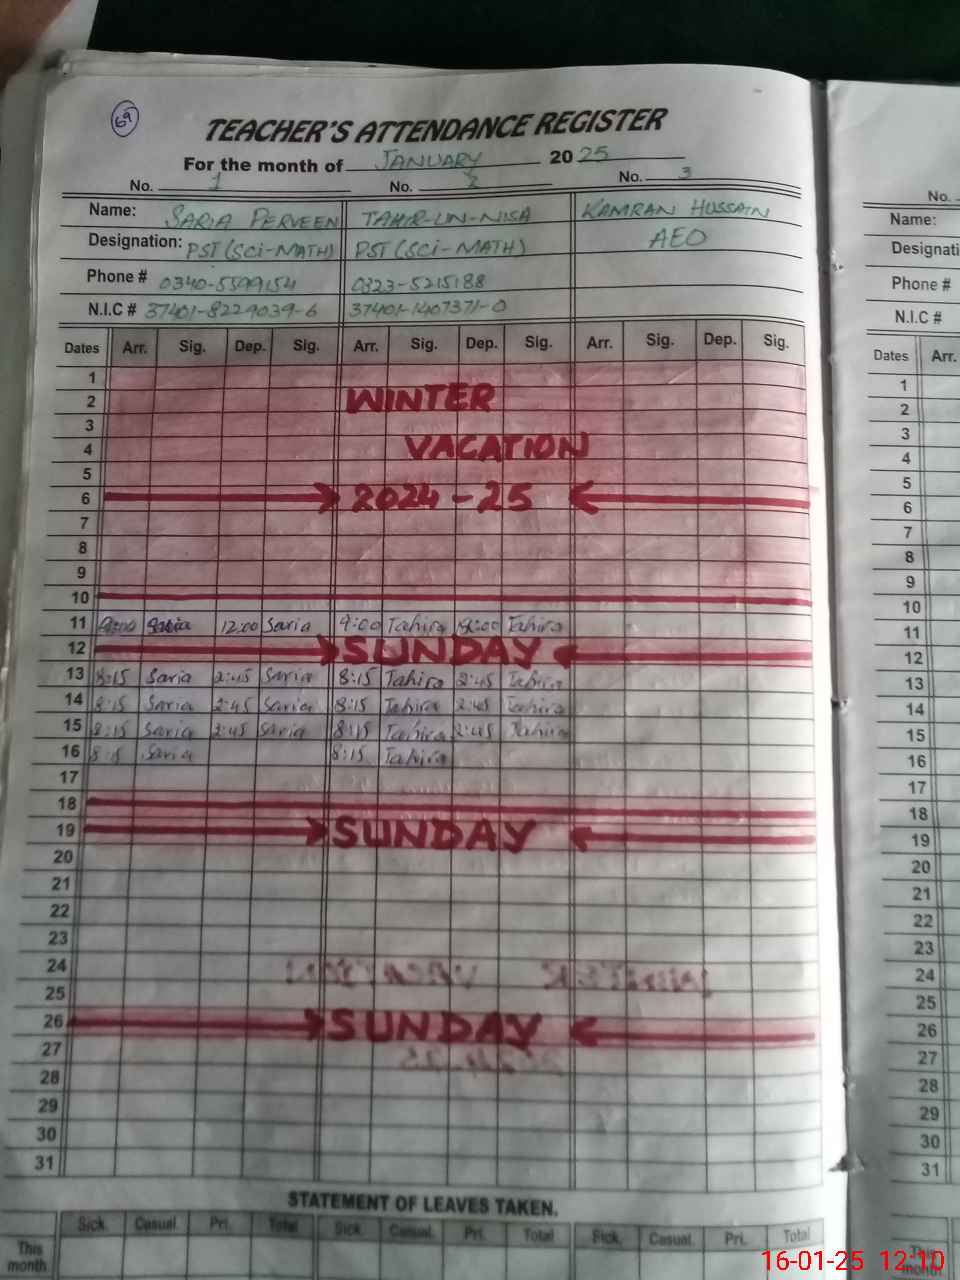 69
TEACHER'S ATTENDANCE REGISTER
For the month of JANUARY 2025
No. 1 No. 2 No. 3 No.
Name: SARIA PERVEEN TAHIR-UN-NISA KAMRAN HUSSAIN Name:
Designation: PST(SCI-MATH) PST(SCI-MATH) AEO Designati
Phone # 0340-5599154 0323-5215188 Phone #
N.I.C # 37401-8229039-6 37401-1407371-0 N.I.C #
Dates Arr. Sig. Dep. Sig. Arr. Sig. Dep. Sig. Arr. Sig. Dep. Sig. Dates Arr.
1 1
2 WINTER 2
3 3
4 VACATION 4
5 5
6 2024-25 6
7 7
8 8
9 9
10 10
11 9:00 Saria 12:00 Saria 9:00 Tahira 12:00 Tahira 11
12 SUNDAY 12
13 8:15 Saria 2:45 Saria 8:15 Tahira 2:45 Tahira 13
14 8:15 Saria 2:45 Saria 8:15 Tahira 2:45 Tahira 14
15 8:15 Saria 2:45 Saria 8:15 Tahira 2:45 Tahira 15
16 8:15 Saria 8:15 Tahira 16
17 17
18 18
19 SUNDAY 19
20 20
21 21
22 22
23 23
24 24
25 25
26 SUNDAY 26
27 27
28 28
29 29
30 30
31 31
STATEMENT OF LEAVES TAKEN.
Sick. Casual. Pri. Total Sick. Casual. Pri. Total Sick. Casual. Pri. Total
This month This month
16-01-25 12:10